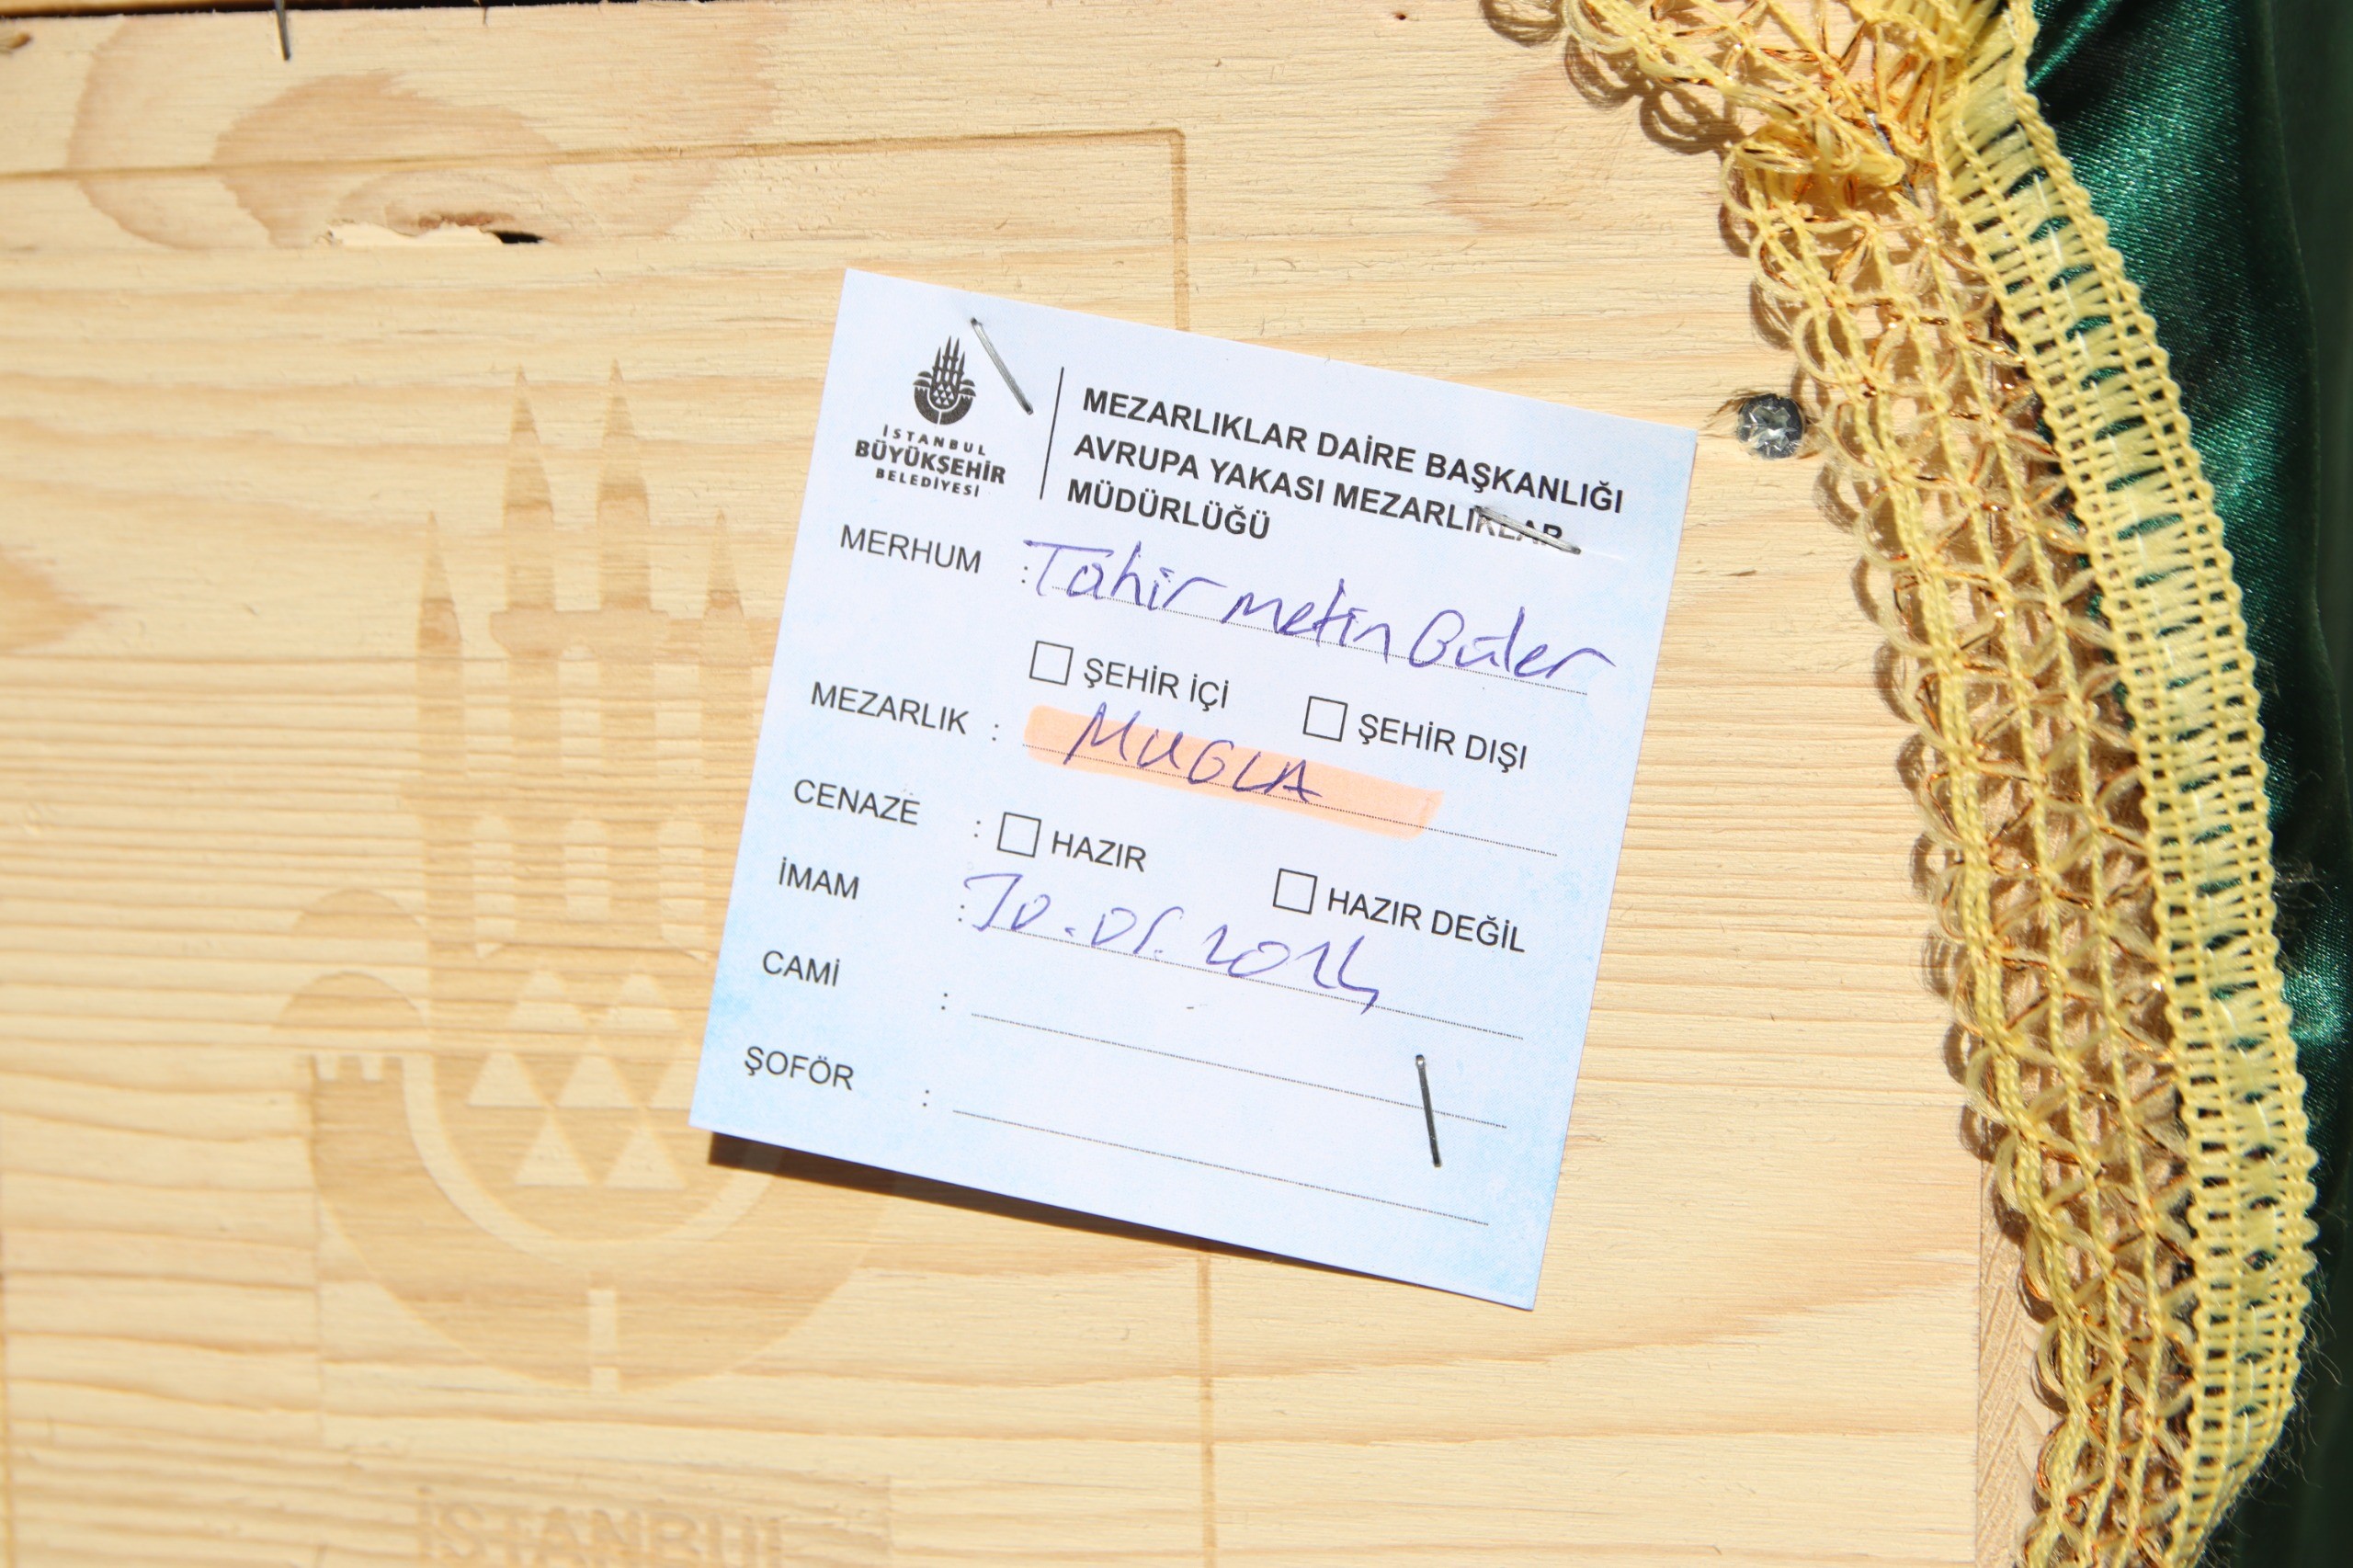 İSTANBUL
BÜYÜKŞEHİR
BELEDİYESİ
MEZARLIKLAR DAİRE BAŞKANLIĞI
AVRUPA YAKASI MEZARLIKLAR
MÜDÜRLÜĞÜ
MERHUM : Tahir Metin Güler
ŞEHİR İÇİ ŞEHİR DIŞI
MEZARLIK : MUGLA
CENAZE : HAZIR HAZIR DEĞİL
İMAM : 30.05.2024
CAMİ :
ŞOFÖR :
İSTANBUL